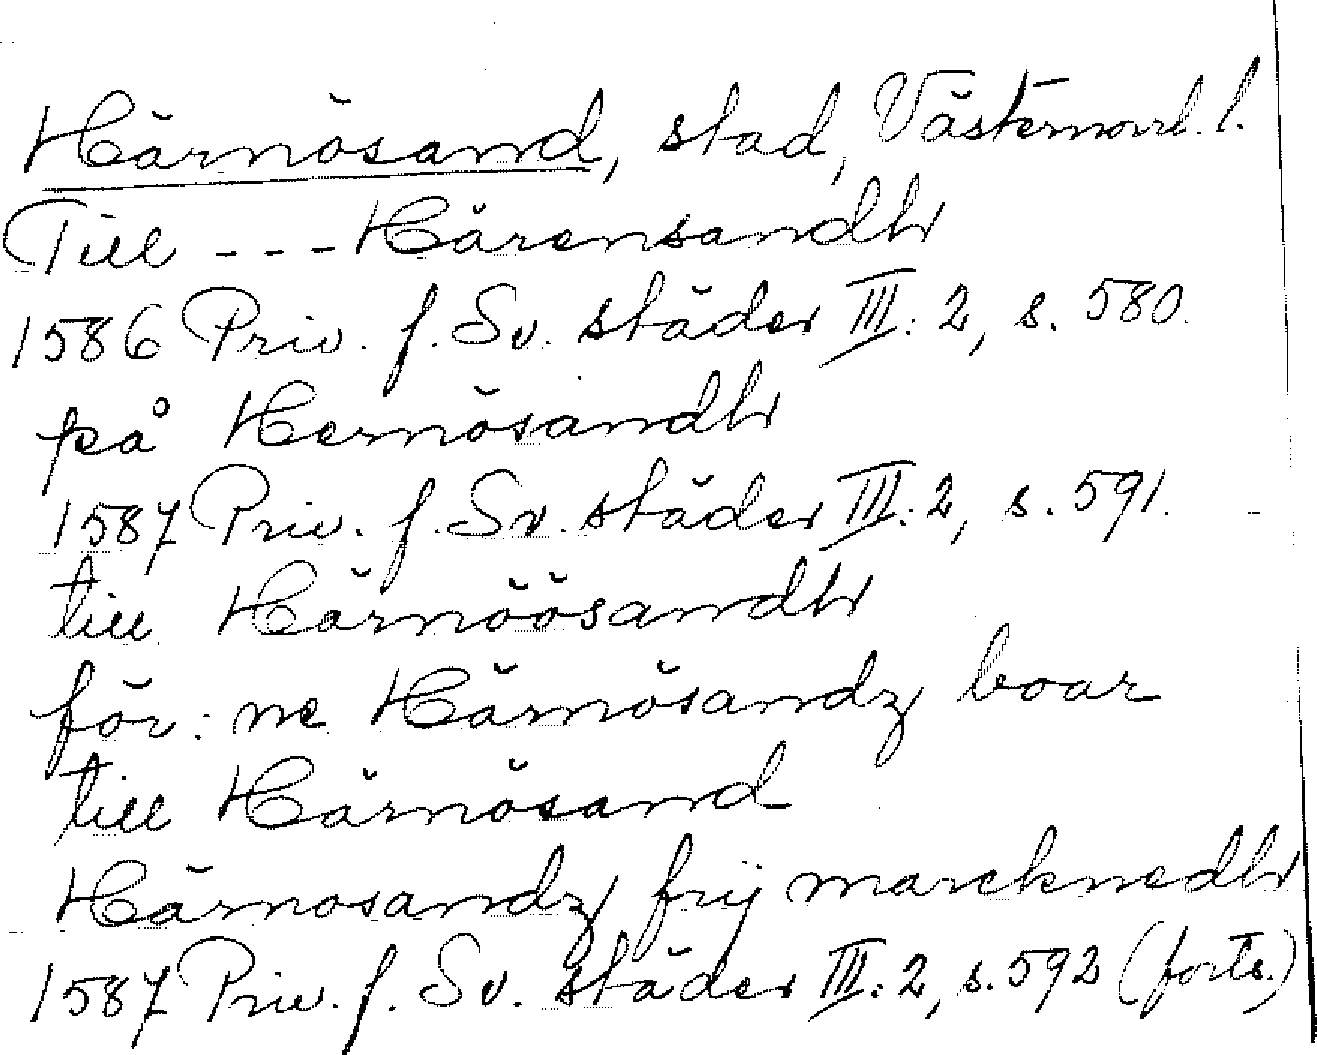 Härnösand, stad, Västernorrl. l.
Till --- Härensandh
1586 Priv. f. Sv. städer III: 2, s. 580.
på Hernösandh
1587 Priv. f. Sv. städer III: 2, s. 591.
till Härnöösandh
för: ne Härnösandz boar
till Härnösand
Härnosandz frij marcknedh
1587 Priv. f. Sv. städer III: 2, s. 592 (forts.)